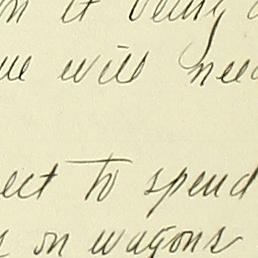 it being
will need
ect to spend
on wagons